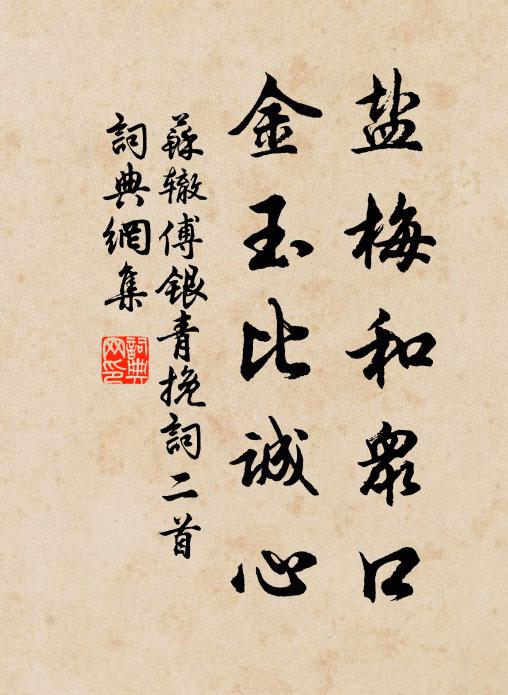 盐梅和眾口
金玉比誠心
蘇辙傅銀青挽詞二首
詞典網集
詞典網印